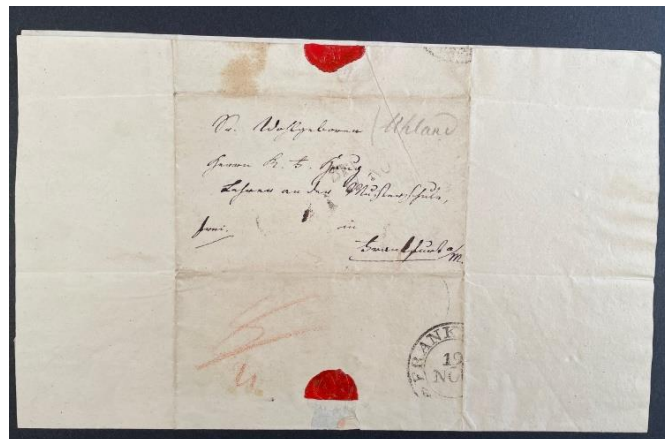 Sr. Wohlgeboren (Uhland
Herrn K. F. Haug
Lehrer an der Musterschule,
frei. in
Frankfurt a/M.
FRANK
19
NO